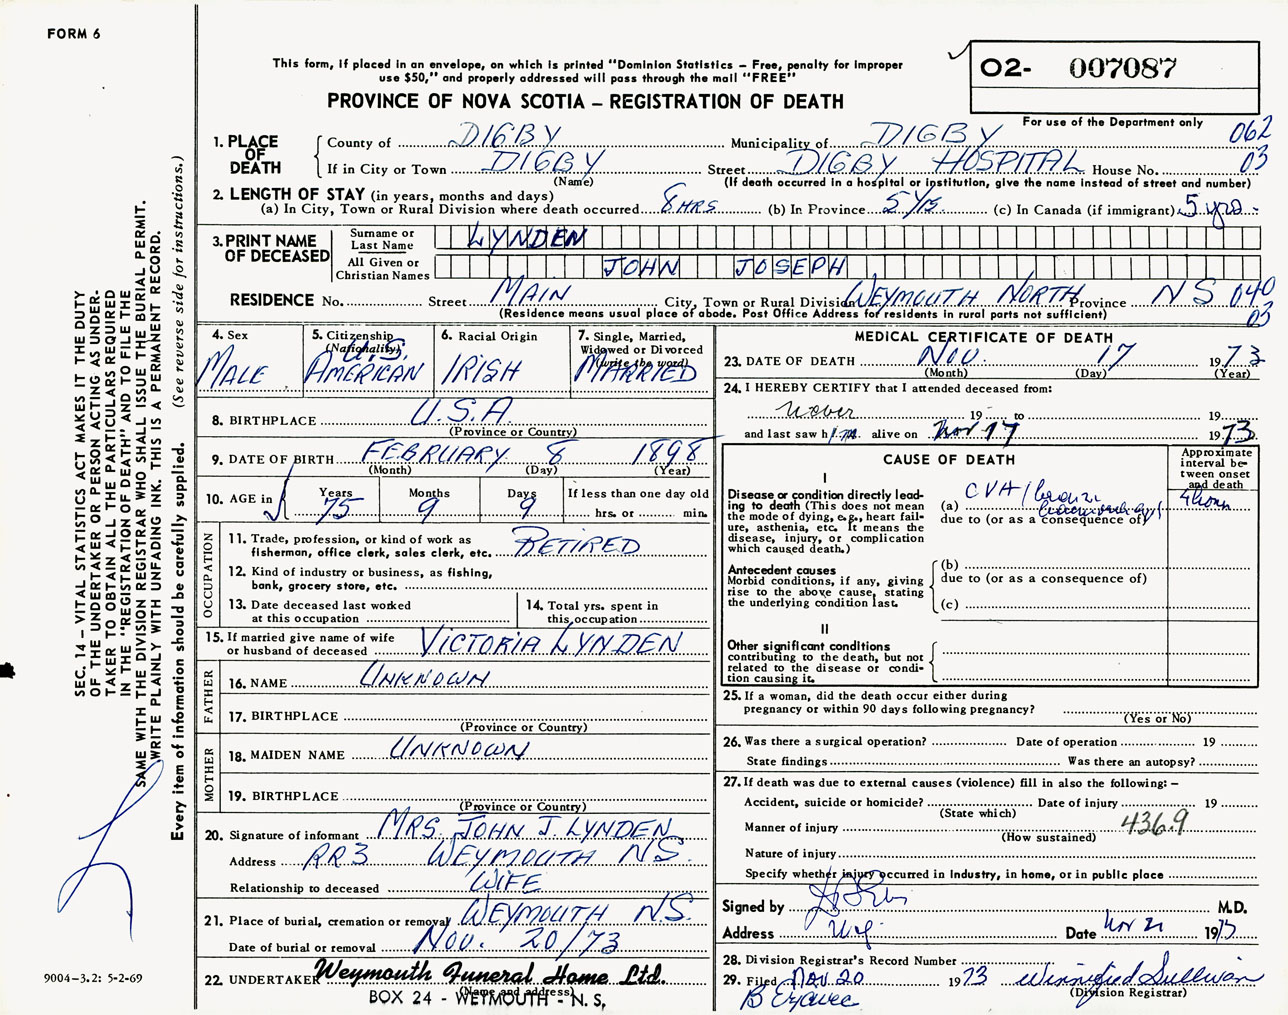 FORM 6
This form, if placed in an envelope, on which is printed "Dominion Statistics – Free, penalty for improper
use $50," and properly addressed will pass through the mail "FREE"
PROVINCE OF NOVA SCOTIA – REGISTRATION OF DEATH
O2- 007087
For use of the Department only
062
03
1. PLACE OF DEATH
County of DIGBY Municipality of DIGBY
If in City or Town DIGBY Street DIGBY HOSPITAL House No.
(Name) (If death occurred in a hospital or institution, give the name instead of street and number)
2. LENGTH OF STAY (in years, months and days)
(a) In City, Town or Rural Division where death occurred 8 HRS (b) In Province 5 Yrs. (c) In Canada (if immigrant) 5 yrs.
3. PRINT NAME OF DECEASED
Surname or Last Name LYNDEN
All Given or Christian Names JOHN JOSEPH
RESIDENCE No. Street MAIN City, Town or Rural Division WEYMOUTH NORTH Province N S 040
(Residence means usual place of abode. Post Office Address for residents in rural parts not sufficient) 03
4. Sex
MALE
5. Citizenship
(Nationality) U.S.
AMERICAN
6. Racial Origin
IRISH
7. Single, Married,
Widowed or Divorced
(write the word)
MARRIED
8. BIRTHPLACE U.S.A.
(Province or Country)
9. DATE OF BIRTH FEBRUARY 8 1898
(Month) (Day) (Year)
10. AGE in Years 75 Months 9 Days 9 If less than one day old
hrs. or min.
OCCUPATION
11. Trade, profession, or kind of work as
fisherman, office clerk, sales clerk, etc. RETIRED
12. Kind of industry or business, as fishing,
bank, grocery store, etc.
13. Date deceased last worked
at this occupation
14. Total yrs. spent in
this occupation
15. If married give name of wife
or husband of deceased VICTORIA LYNDEN
FATHER
16. NAME UNKNOWN
17. BIRTHPLACE
(Province or Country)
MOTHER
18. MAIDEN NAME UNKNOWN
19. BIRTHPLACE
(Province or Country)
20. Signature of informant MRS. JOHN J. LYNDEN
Address RR3 WEYMOUTH N.S.
Relationship to deceased WIFE
21. Place of burial, cremation or removal WEYMOUTH N.S.
Date of burial or removal NOV. 20/73
22. UNDERTAKER Weymouth Funeral Home Ltd.
(Name and address)
BOX 24 - WEYMOUTH - N. S,
MEDICAL CERTIFICATE OF DEATH
23. DATE OF DEATH NOV. 17 1973
(Month) (Day) (Year)
24. I HEREBY CERTIFY that I attended deceased from:
never 19 to 19
and last saw him alive on Nov 17 1973
CAUSE OF DEATH
Approximate
interval be-
tween onset
and death
I
Disease or condition directly lead-
ing to death (This does not mean
the mode of dying, e.g., heart fail-
ure, asthenia, etc. It means the
disease, injury, or complication
which caused death.)
(a) CVA /
due to (or as a consequence of)
4 hours
Antecedent causes
Morbid conditions, if any, giving
rise to the above cause, stating
the underlying condition last.
(b)
due to (or as a consequence of)
(c)
II
Other significant conditions
contributing to the death, but not
related to the disease or condi-
tion causing it.
25. If a woman, did the death occur either during
pregnancy or within 90 days following pregnancy?
(Yes or No)
26. Was there a surgical operation? Date of operation 19
State findings Was there an autopsy?
27. If death was due to external causes (violence) fill in also the following: –
Accident, suicide or homicide? Date of injury 19
(State which)
Manner of injury 436.9
(How sustained)
Nature of injury
Specify whether injury occurred in industry, in home, or in public place
Signed by M.D.
Address Date Nov 21 1973
28. Division Registrar's Record Number
29. Filed Nov. 20 1973 Winnifred Sullivan
(Division Registrar)
SEC. 14 – VITAL STATISTICS ACT MAKES IT THE DUTY
OF THE UNDERTAKER OR PERSON ACTING AS UNDER-
TAKER TO OBTAIN ALL THE PARTICULARS REQUIRED
IN THE "REGISTRATION OF DEATH" AND TO FILE THE
SAME WITH THE DIVISION REGISTRAR WHO SHALL ISSUE THE BURIAL PERMIT.
WRITE PLAINLY WITH UNFADING INK. THIS IS A PERMANENT RECORD.
Every item of information should be carefully supplied. (See reverse side for instructions.)
9004–3.2: 5-2-69